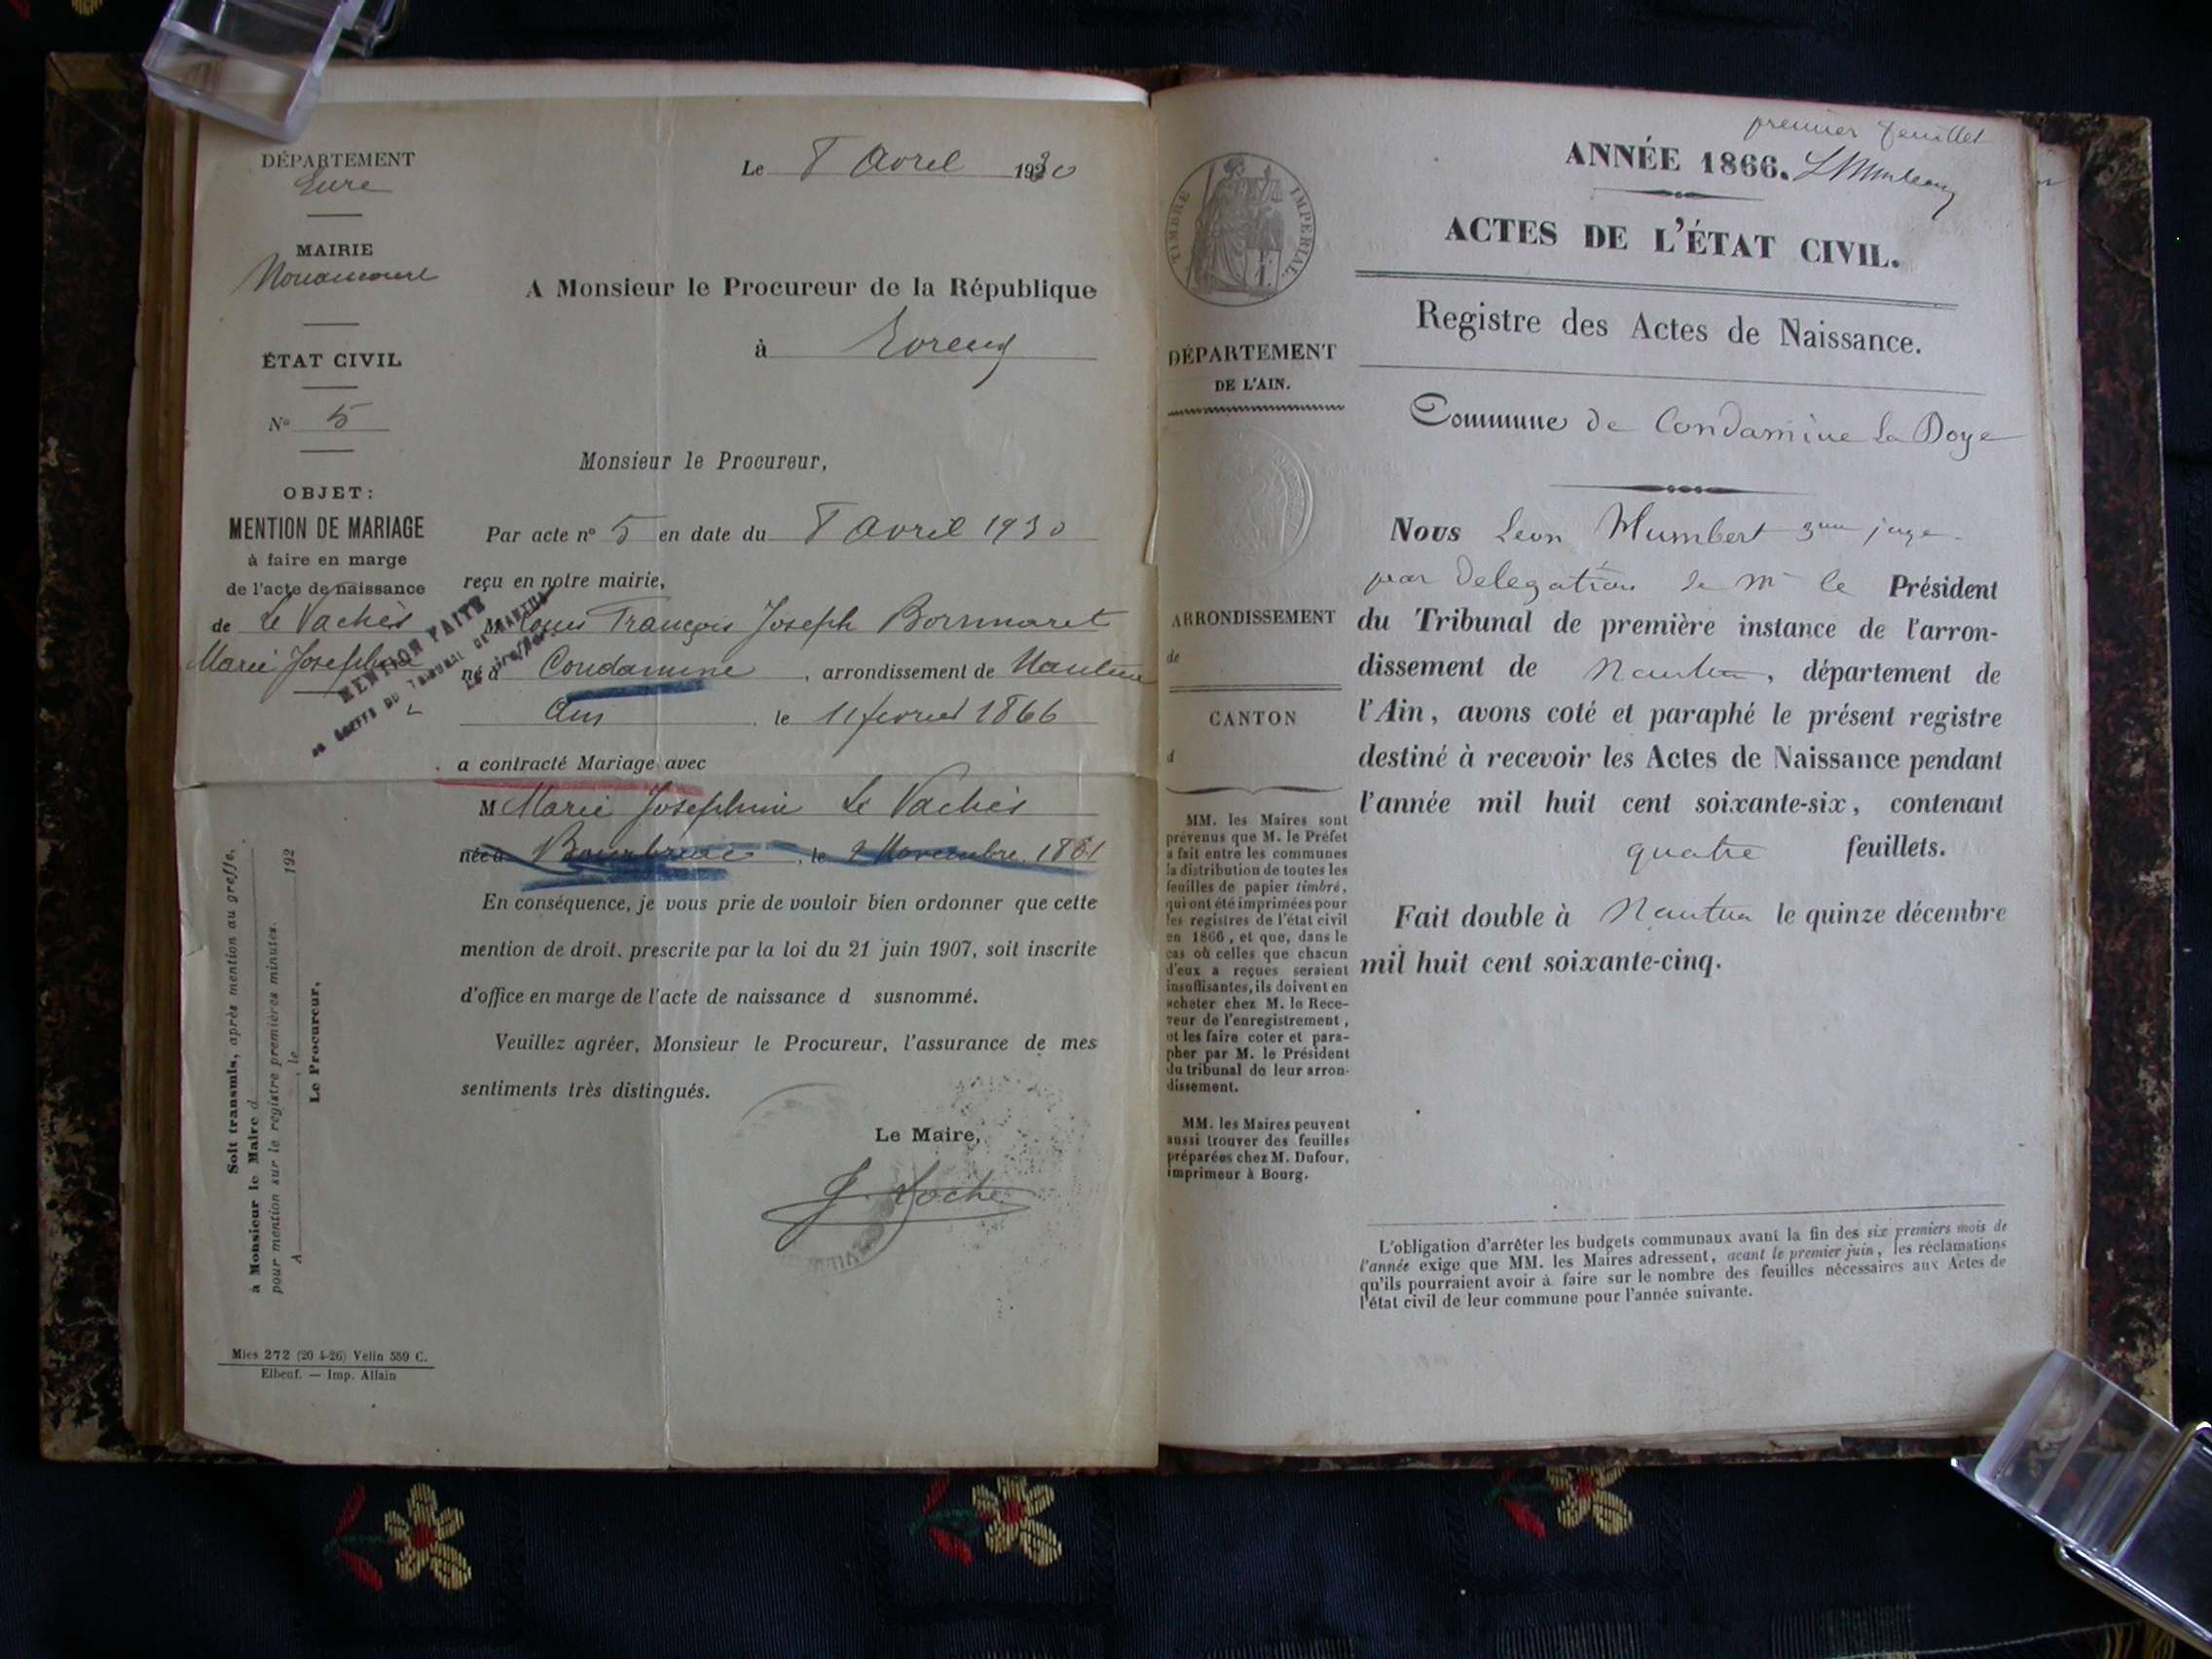 DÉPARTEMENT
Eure
MAIRIE
Nonancourt
ÉTAT CIVIL
N° 5
OBJET:
MENTION DE MARIAGE
à faire en marge
de l'acte de naissance
de Le Vachès
Marie Josephine
MENTION FAITE
AU GREFFE DU TRIBUNAL DE NANTUA
Le 8 Avril 1930
A Monsieur le Procureur de la République
à Evreux
Monsieur le Procureur,
Par acte n° 5 en date du 8 Avril 1930
reçu en notre mairie,
M Louis François Joseph Bornmaret
né à Condamine, arrondissement de Nantua
Ain le 11 fevrier 1866
a contracté Mariage avec
M Marie Josephine Le Vachès
née à Bourbriac, le 2 Novembre 1861
En conséquence, je vous prie de vouloir bien ordonner que cette
mention de droit, prescrite par la loi du 21 juin 1907, soit inscrite
d'office en marge de l'acte de naissance d susnommé.
Veuillez agréer, Monsieur le Procureur, l'assurance de mes
sentiments très distingués.
Le Maire,
J. Loche
Soit transmis, après mention au greffe,
à Monsieur le Maire d
pour mention sur le registre premières minutes.
A , le 192
Le Procureur,
Mies 272 (20-4-26) Velin 559 C.
Elbeuf. — Imp. Allain
premier feuillet
ANNÉE 1866. L Humbert
ACTES DE L'ÉTAT CIVIL.
Registre des Actes de Naissance.
TIMBRE IMPÉRIAL.
DÉPARTEMENT
DE L'AIN.
ARRONDISSEMENT
de
CANTON
d
MM. les Maires sont
prévenus que M. le Préfet
a fait entre les communes
la distribution de toutes les
feuilles de papier timbré,
qui ont été imprimées pour
les registres de l'état civil
en 1866, et que, dans le
cas où celles que chacun
d'eux a reçues seraient
insuffisantes, ils doivent en
acheter chez M. le Rece-
veur de l'enregistrement,
et les faire coter et para-
pher par M. le Président
du tribunal de leur arron-
dissement.
MM. les Maires peuvent
aussi trouver des feuilles
préparées chez M. Dufour,
imprimeur à Bourg.
Commune de Condamine La Doye
Nous Leon Humbert 3eme juge
par delegation de Mr le Président
du Tribunal de première instance de l'arron-
dissement de Nantua, département de
l'Ain, avons coté et paraphé le présent registre
destiné à recevoir les Actes de Naissance pendant
l'année mil huit cent soixante-six, contenant
quatre feuillets.
Fait double à Nantua le quinze décembre
mil huit cent soixante-cinq.
L'obligation d'arrêter les budgets communaux avant la fin des six premiers mois de
l'année exige que MM. les Maires adressent, avant le premier juin, les réclamations
qu'ils pourraient avoir à faire sur le nombre des feuilles nécessaires aux Actes de
l'état civil de leur commune pour l'année suivante.